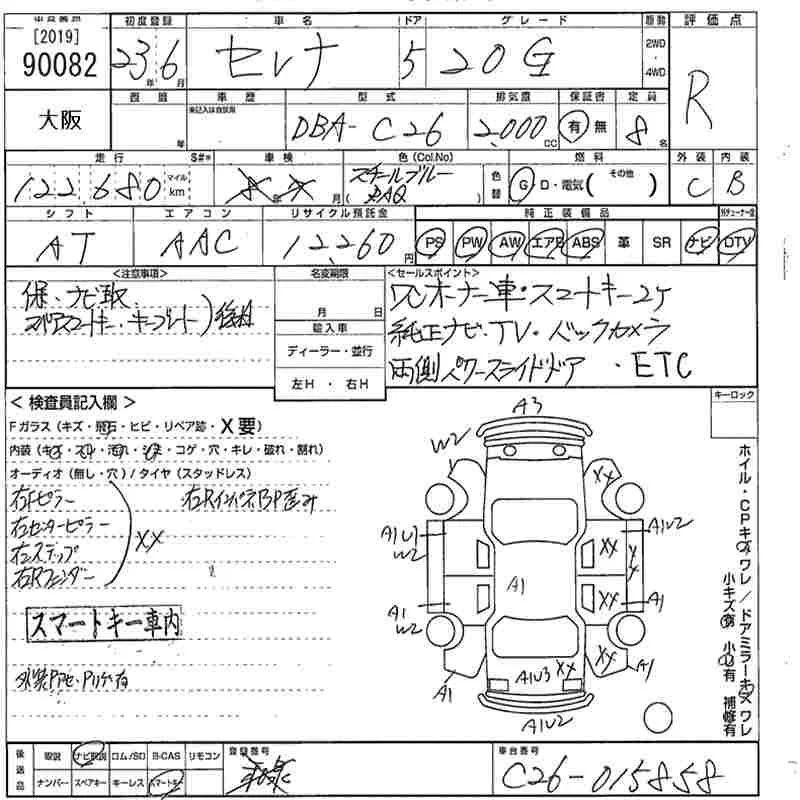 [2019]
90082
初度登録 車名 ドア グレード 駆動 評価点
23年 6月 セレナ 5 20G 2WD ・ 4WD R
大阪
車歴 型式 排気量 保証書 定員
未記入は自家用
DBA-C26 2,000CC 有 無 8名
走行 S#* 車検 色(Col.No) 色替 燃料 外装 内装
122,680 マイル km 年 月 スチールブルー ( RAQ ) G・D・電気( その他 ) C B
シフト エアコン リサイクル預託金 純正装備品
AT AAC 12,260円 PS PW AW エアB ABS 革 SR ナビ DTV
<注意事項> 名変期限 <セールスポイント>
保・ナビ取 スペアスマートキー・キープレート)後送
月 日
輸入車
ディーラー・並行
左H ・ 右H
ワンオーナー車・スマートキー2ケ
純正ナビ・TV・バックカメラ
両側パワースライドドア ・ETC
<検査員記入欄> キーロック
Fガラス(キズ・飛石・ヒビ・リペア跡・X要)
内装(キズ・スレ・汚れ・シミ・コゲ・穴・キレ・破れ・割れ)
オーディオ(無し・穴)/タイヤ(スタッドレス)
右Fピラー 右RインパネBP歪み
右センターピラー
右ステップ XX
右Rフェンダー
スマートキー車内
A3
W2 XX
A1U1 W2 XX XX A1U2
A1
A1 W2 XX A1
A1 A1U3 XX XX A1
A1U2
ホイル・CPキズワレ/ドアミラーキズワレ
小キズ有 小凹有 補修有
後送品 取説 ナビ取説 ロム/SD B-CAS リモコン 登録番号 車台番号
ナンバー スペアキー キーレス スマートキー C26-015858